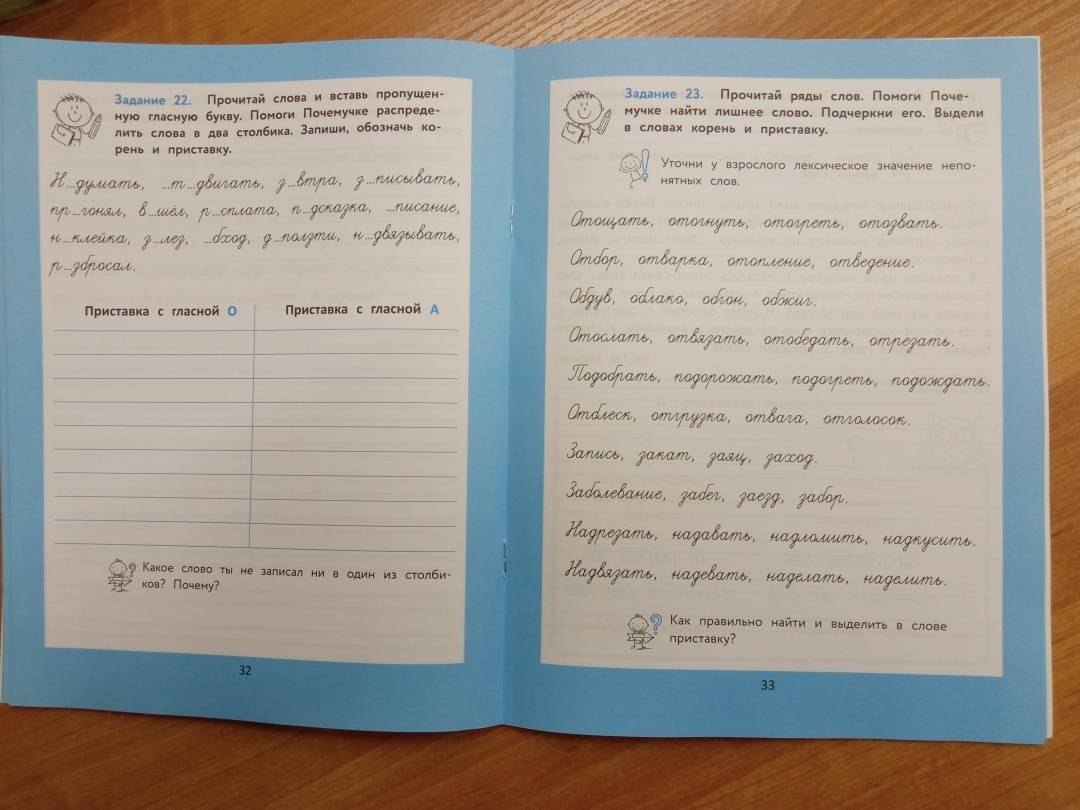 Задание 22. Прочитай слова и вставь пропущен-
ную гласную букву. Помоги Почемучке распреде-
лить слова в два столбика. Запиши, обозначь ко-
рень и приставку.
Н...думать, ...т...двигать, з...втра, з...писывать,
пр...гонял, в...шёл, р...сплата, п...дсказка, ...писание,
н...клейка, з...лез, ...бход, д...ползти, н...двязывать,
р...збросал.
Приставка с гласной О Приставка с гласной А
Какое слово ты не записал ни в один из столби-
ков? Почему?
32
Задание 23. Прочитай ряды слов. Помоги Поче-
мучке найти лишнее слово. Подчеркни его. Выдели
в словах корень и приставку.
Уточни у взрослого лексическое значение непо-
нятных слов.
Отощать, отогнуть, отогреть, отозвать.
Отбор, отварка, отопление, отведение.
Обдув, облако, обгон, обжиг.
Отослать, отвязать, отобедать, отрезать.
Подобрать, подорожать, подогреть, подождать.
Отблеск, отгрузка, отвага, отголосок.
Запись, закат, заяц, заход.
Заболевание, забег, заезд, забор.
Надрезать, надавать, надломить, надкусить.
Надвязать, надевать, наделать, наделить.
Как правильно найти и выделить в слове
приставку?
33